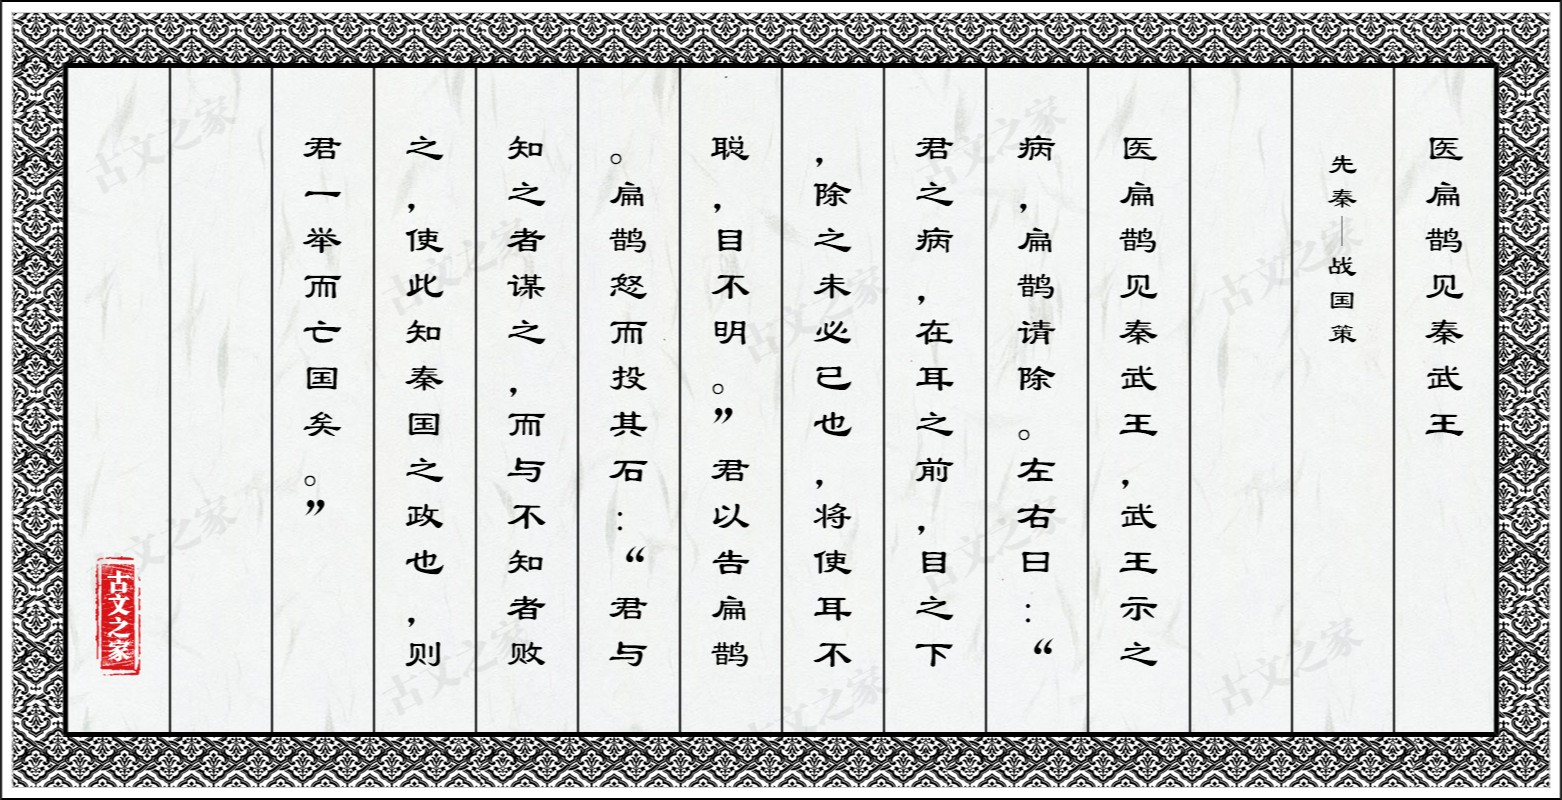 医扁鹊见秦武王
先秦—战国策
医扁鹊见秦武王，武王示之
病，扁鹊请除。左右曰：“
君之病，在耳之前，目之下
，除之未必已也，将使耳不
聪，目不明。”君以告扁鹊
。扁鹊怒而投其石：“君与
知之者谋之，而与不知者败
之，使此知秦国之政也，则
君一举而亡国矣。”
古文之家